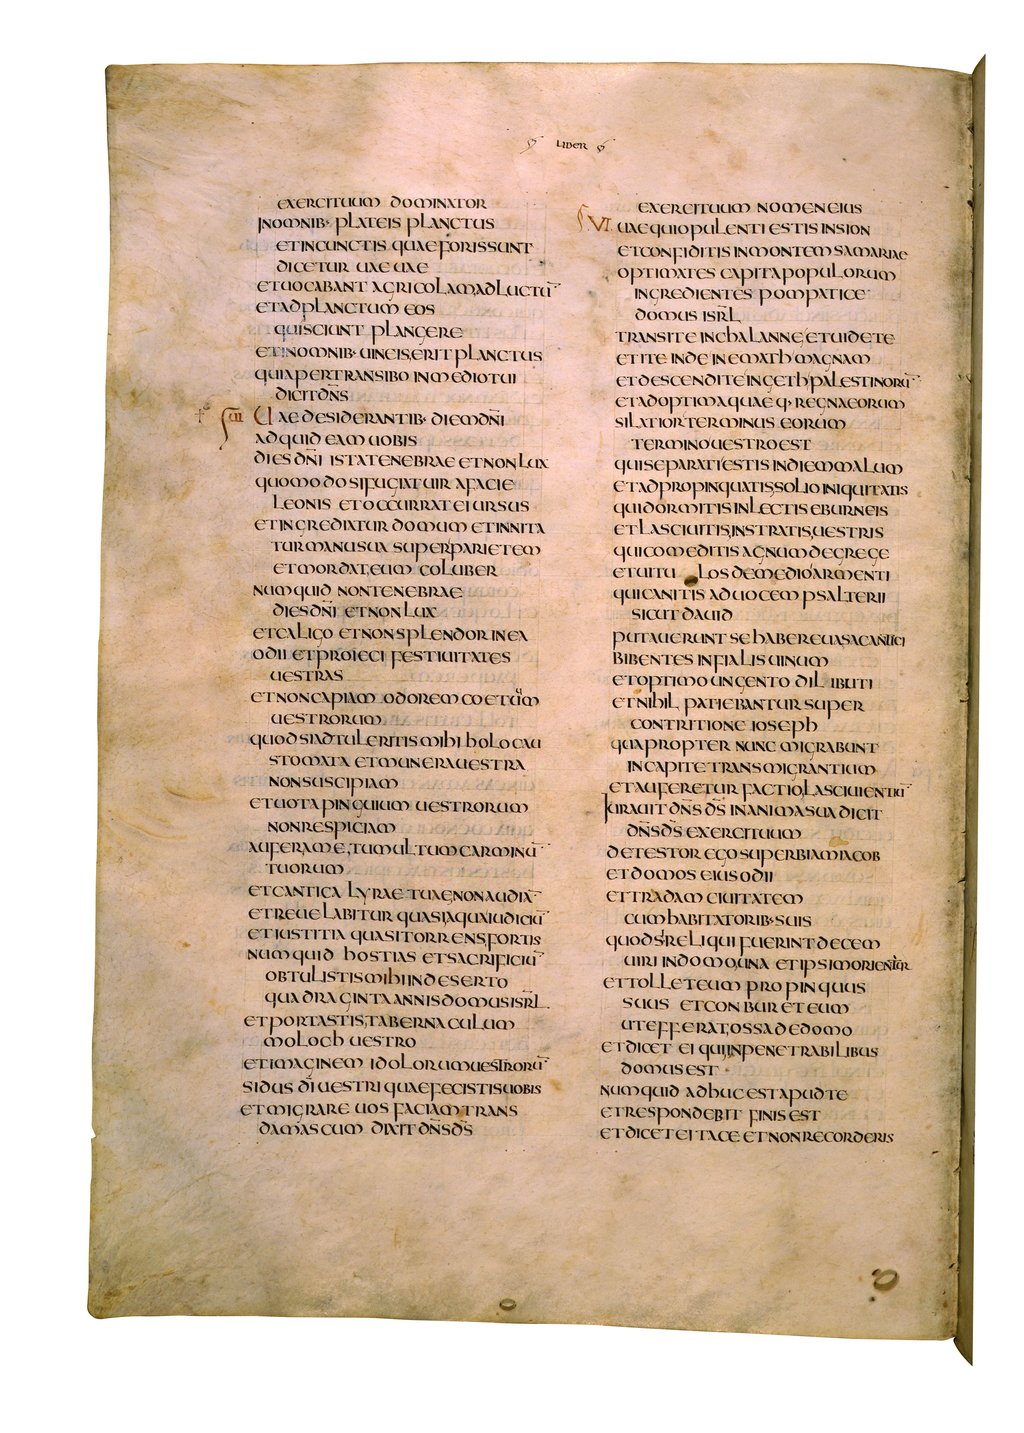 LIBER
EXERCITUUM DOMINATOR
INOMNIB· PLATEIS PLANCTUS
ETINCUNCTIS QUAEFORISSUNT
DICETUR UAE UAE
ETUOCABANT AGRICOLAM,ADLUCTŪ
ETADPLANCTUM EOS
QUISCIUNT PLANGERE
ETINOMNIB· UINEIS,ERIT PLANCTUS
QUIAPERTRANSIBO INMEDIOTUI
DICITDN̄S
UAE DESIDERANTIB· DIEMDN̄I
ADQUID EAM UOBIS
DIES DN̄I ISTATENEBRAE ETNON LUX
QUOMODOSIFUGIATUIR AFACIE
LEONIS ETOCCURRAT EIURSUS
ETINGREDIATUR DOMUM ETINNITA
TURMANUSUA SUPERPARIETEM
ETMORDAT,EUM COLUBER
NUMQUID NONTENEBRAE
DIESDN̄I ETNON LUX
ETCALIGO ETNONSPLENDOR INEA
ODII ETPROIECI FESTIUITATES
UESTRAS
ETNONCAPIAM ODOREM COETUUM
UESTRORUM
QUODSIADTULERITISMIHI HOLOCAU
STOMATA ETMUNERAUESTRA
NONSUSCIPIAM
ETUOTAPINGUIUM UESTRORUM
NONRESPICIAM
AUFERAME,TUMULTUMCARMINŪ
TUORUM
ETCANTICA LYRAE TUAE,NONAUDIĀ
ETREUELABITUR QUASIAQUAIUDICIŪ
ETIUSTITIA QUASITORRENSFORTIS
NUMQUID HOSTIAS ETSACRIFICIŪ
OBTULISTISMIHIINDESERTO
QUADRAGINTAANNISDOMUSISR̄L
ETPORTASTIS,TABERNACULUM
MOLOCH UESTRO
ETIMAGINEM IDOLORUMUESTRORŪ
SIDUS DĪ UESTRI QUAEFECISTISUOBIS
ETMIGRARE UOS FACIAMTRANS
DAMASCUM DIXITDN̄SD̄S
EXERCITUUM NOMENEIUS
VI UAEQUIOPULENTI ESTIS INSION
ETCONFIDITIS INMONTEM SAMARIAE
OPTIMATES CAPITAPOPULORUM
INGREDIENTES POMPATICE
DOMUS ISR̄L
TRANSITE INCHALANNE,ETUIDETE
ETITE INDE INEMATH MAGNAM
ETDESCENDITE INGETH PALESTINORŪ
ETADOPTIMAQUAEQ· REGNAEORUM
SILATIOR TERMINUS EORUM
TERMINOUESTROEST
QUISEPARATI ESTIS INDIEMMALUM
ETADPROPINQUATIS,SOLIO INIQUITATIS
QUIDORMITIS INLECTIS EBURNEIS
ETLASCIUITIS,INSTRATIS,UESTRIS
QUICOMEDITIS AGNUMDEGREGE
ETUITU LOSDEMEDIOARMENTI
QUICANITIS ADUOCEMPSALTERII
SICUT DAUID
PUTAUERUNT SEHABEREUASACANTICI
BIBENTES INFIALIS UINUM
ETOPTIMO UNGENTO DILIBUTI
ETNIHIL PATIEBANTURSUPER
CONTRITIONE IOSEPH
QUAPROPTER NUNC MIGRABUNT
INCAPITE TRANSMIGRANTIUM
ETAUFERETUR FACTIO,LASCIUIENTIŪ
IURAUIT DN̄S D̄S INANIMASUADICIT
DN̄SD̄S EXERCITUUM
DETESTOR EGOSUPERBIAMIACOB
ETDOMOS EIUSODII
ETTRADAM CIUITATEM
CUMHABITATORIB·SUIS
QUODSIRELIQUI FUERINTDECEM
UIRI INDOMO,UNA ETIPSIMORIENTUR
ETTOLLETEUM PROPINQUUS
SUUS ETCONBURETEUM
UTEFFERAT,OSSADEDOMO
ETDICET EI QUIINPENETRABILIBUS
DOMUSEST
NUMQUID ADHUCESTAPUDTE
ETRESPONDEBIT FINISEST
ETDICETEI TACE ETNONRECORDERIS